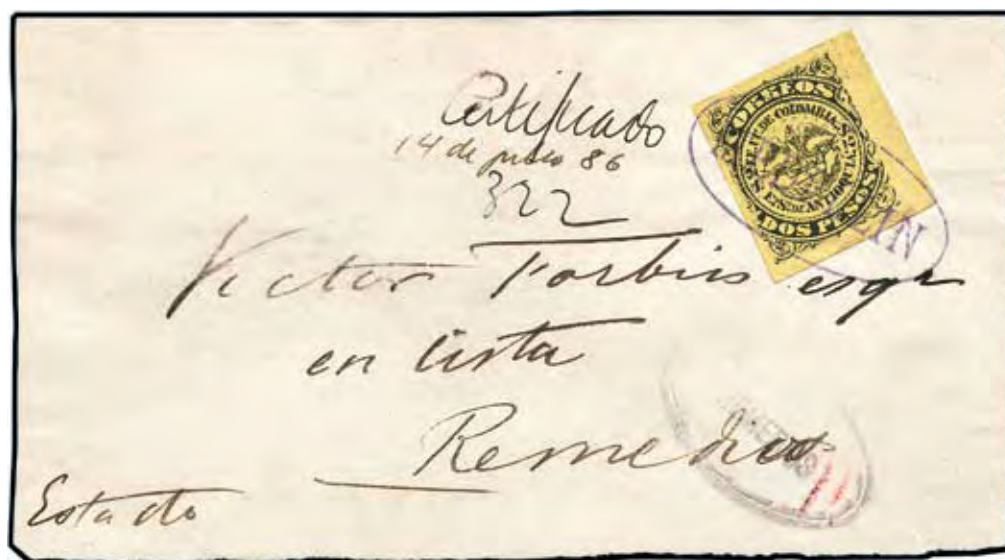 Certificado
14 de junio 86
322
CORREOS
E.E. U.U. DE COLOMBIA
Eo. So. DE ANTIOQUIA
DOS PESOS
LIN
Victor Forbiss esqr
en lista
Remedios
Estado